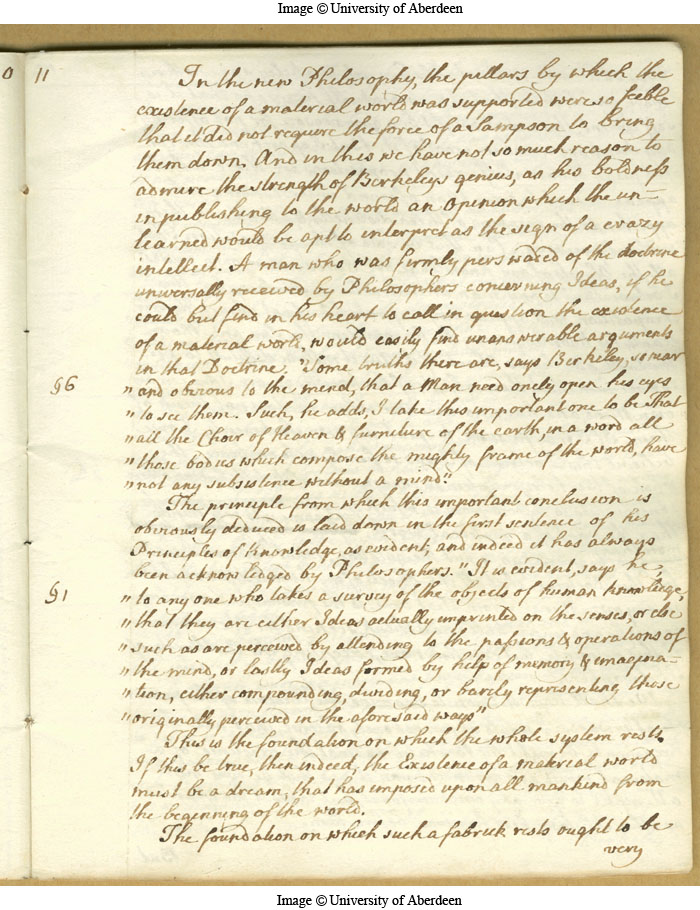 Image © University of Aberdeen
0 11
In the new Philosophy, the pillars by which the
existence of a material world was supported were so feeble
that it did not require the force of a Sampson to bring
them down. And in this we have not so much reason to
admire the strength of Berkeleys genius, as his boldness
in publishing to the world an Opinion which the un-
learned would be apt to interpret as the sign of a crazy
intellect. A man who was firmly perswaded of the doctrine
universally received by Philosophers concerning Ideas, if he
could but find in his heart to call in question the existence
of a material world, would easily find unanswerable arguments
in that Doctrine. "Some truths there are, says Berkeley, so near
§6 " and obvious to the mind, that a Man need onely open his eyes
" to see them. Such, he adds, I take this important one to be That
" all the Choir of Heaven & furniture of the earth, in a word all
" those bodies which compose the mighty frame of the world, have
" not any subsistence without a mind."
The principle from which this important conclusion is
obviously deduced is laid down in the first sentence of his
Principles of Knowledge, as evident, and indeed it has always
been acknowledged by Philosophers. "It is evident, says he,
§1 " to any one who takes a survey of the objects of human knowledge,
" that they are either Ideas actually imprinted on the senses, or else
" such as are perceived by attending to the passions & operations of
" the mind, or lastly Ideas formed by help of memory & imagina-
" tion, either compounding, dividing, or barely representing those
" originally perceived in the aforesaid ways"
This is the foundation on which the whole system rests.
If this be true, then indeed, the Existence of a material world
must be a dream, that has imposed upon all mankind from
the beginning of the world.
The foundation on which such a fabrick rests ought to be
very
Image © University of Aberdeen